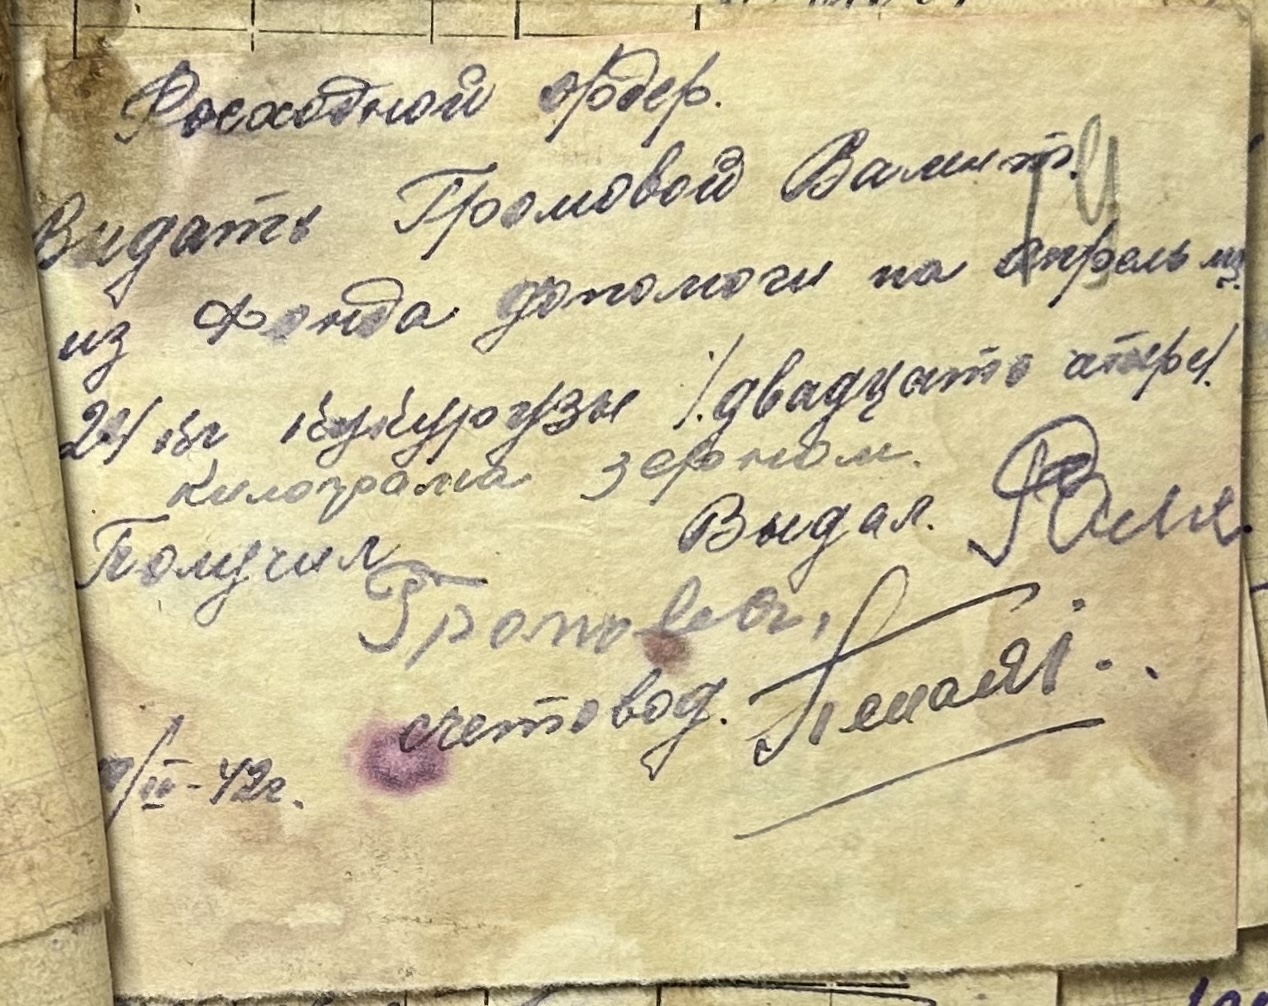 Росходной ордер.
Видать Громовой Валент.
из Фонда допомоги на апрель мц.
24 кг кукурузы /двадцать четыре/.
килограма зерном.
Получил Выдал.
Громова,
счетовод.
-42г.